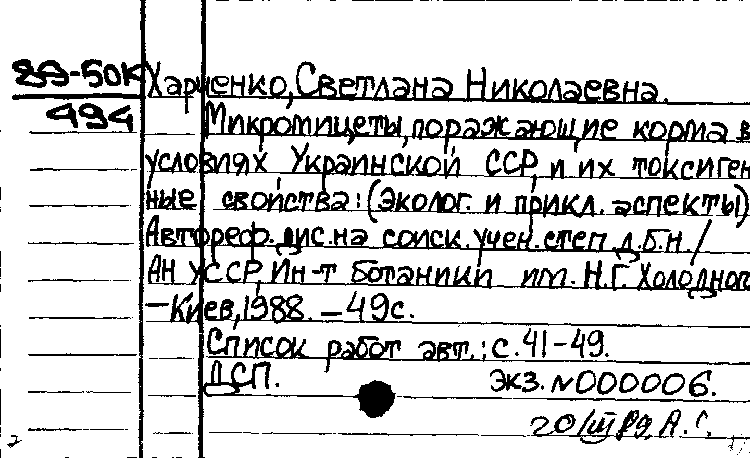 89-50К Харченко, Светлана Николаевна.
494 Микромицеты, поражающие корма в
условиях Украинской ССР, и их токсиген
ные свойства: (Эколог. и прикл. аспекты)
Автореф. дис. на соиск. учен. степ. д.б.н. /
АН УССР, Ин-т ботаники им. Н.Г. Холодног
— Киев, 1988. — 49с.
Список работ авт.: с. 41-49.
ДСП. экз. №000006.
20/III 89. А. Г.